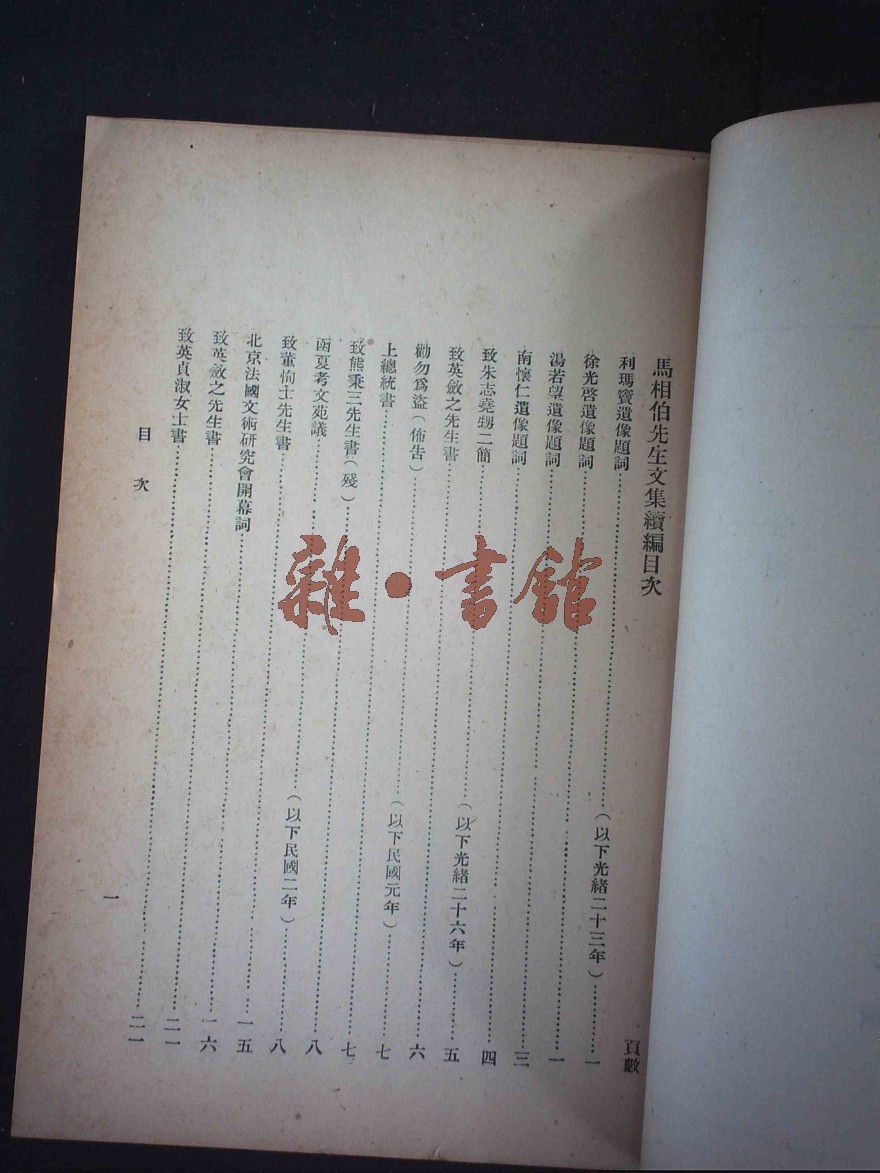 馬相伯先生文集續編目次
頁數
利瑪竇遺像題詞……(以下光緒二十三年)……一
徐光啓遺像題詞……一
湯若望遺像題詞……三
南懷仁遺像題詞……四
致朱志堯甥二簡……(以下光緒二十六年)……五
致英斂之先生書……六
勸勿爲盜(佈告)……(以下民國元年)……七
上總統書……七
致熊秉三先生書(殘)……八
函夏考文苑議……(以下民國二年)……八
致董恂士先生書……一五
北京法國文術研究會開幕詞……一六
致英斂之先生書……二一
致英貞淑女士書……二一
目次
一
雜·書館